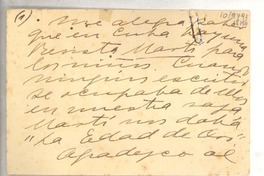 (1) Me alegra saber
que en Cuba haya una
Revista Martí para
los niños. Cuando
ningún escritor
se ocupaba de ellos
en nuestra raza
Martí nos daba
"La Edad de Oro"
Agradezco al